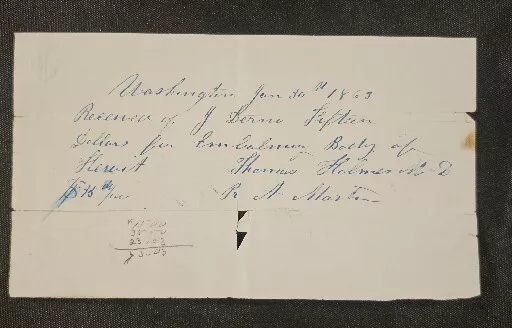 Washington Jan 30th 1863
Received of J Derno Fifteen
Dollars for Embalming Body of
Thomas Holmes M D
R A Martin